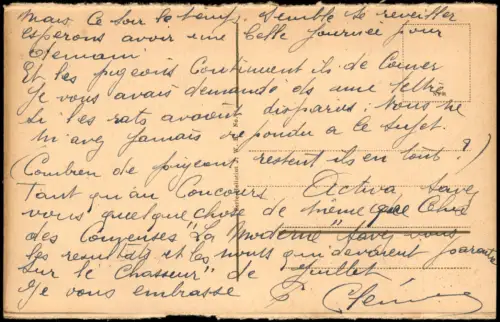 Mais ce soir le temps semble se reveiller
esperons avoir une belle journee pour
demain
Et les pigeons continuent ils de couver
Je vous avais demandé ds une lettre
si les rats avaient disparus. Vous ne
m'avez jamais repondu a ce sujet.
(Combien de pigeons restent ils en tout ?)
Tant qu'au Concours Activa savez
vous quelque chose de même que celui
des "La Moderne" Savez vous
les resultats et les noms qui devaient paraitre
sur le "Chasseur" de Juillet
Je vous embrasse